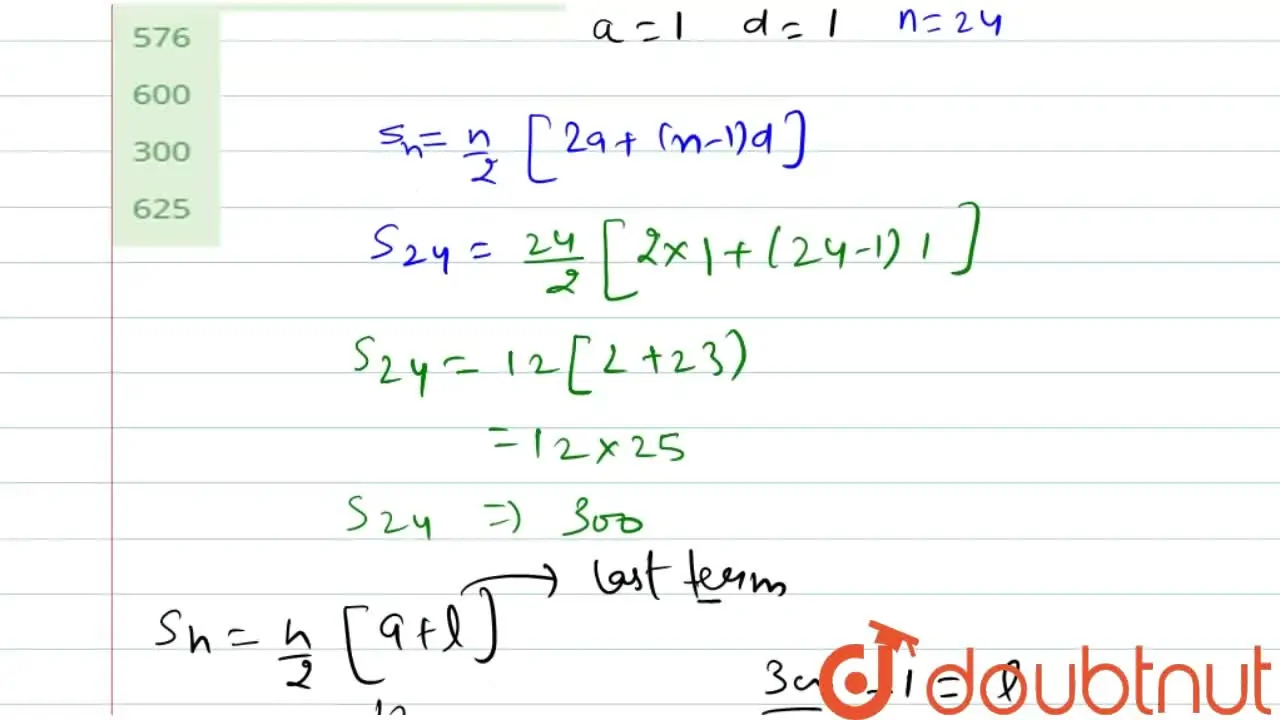 576
600
300
625
a = 1 d = 1 n = 24
Sn = n/2 [2a + (n-1)d]
S24 = 24/2 [2×1 + (24-1) 1]
S24 = 12 [2 + 23)
= 12 × 25
S24 ⇒ 300
→ last term
Sn = n/2 [a + l]
- 1 = l
doubtnut